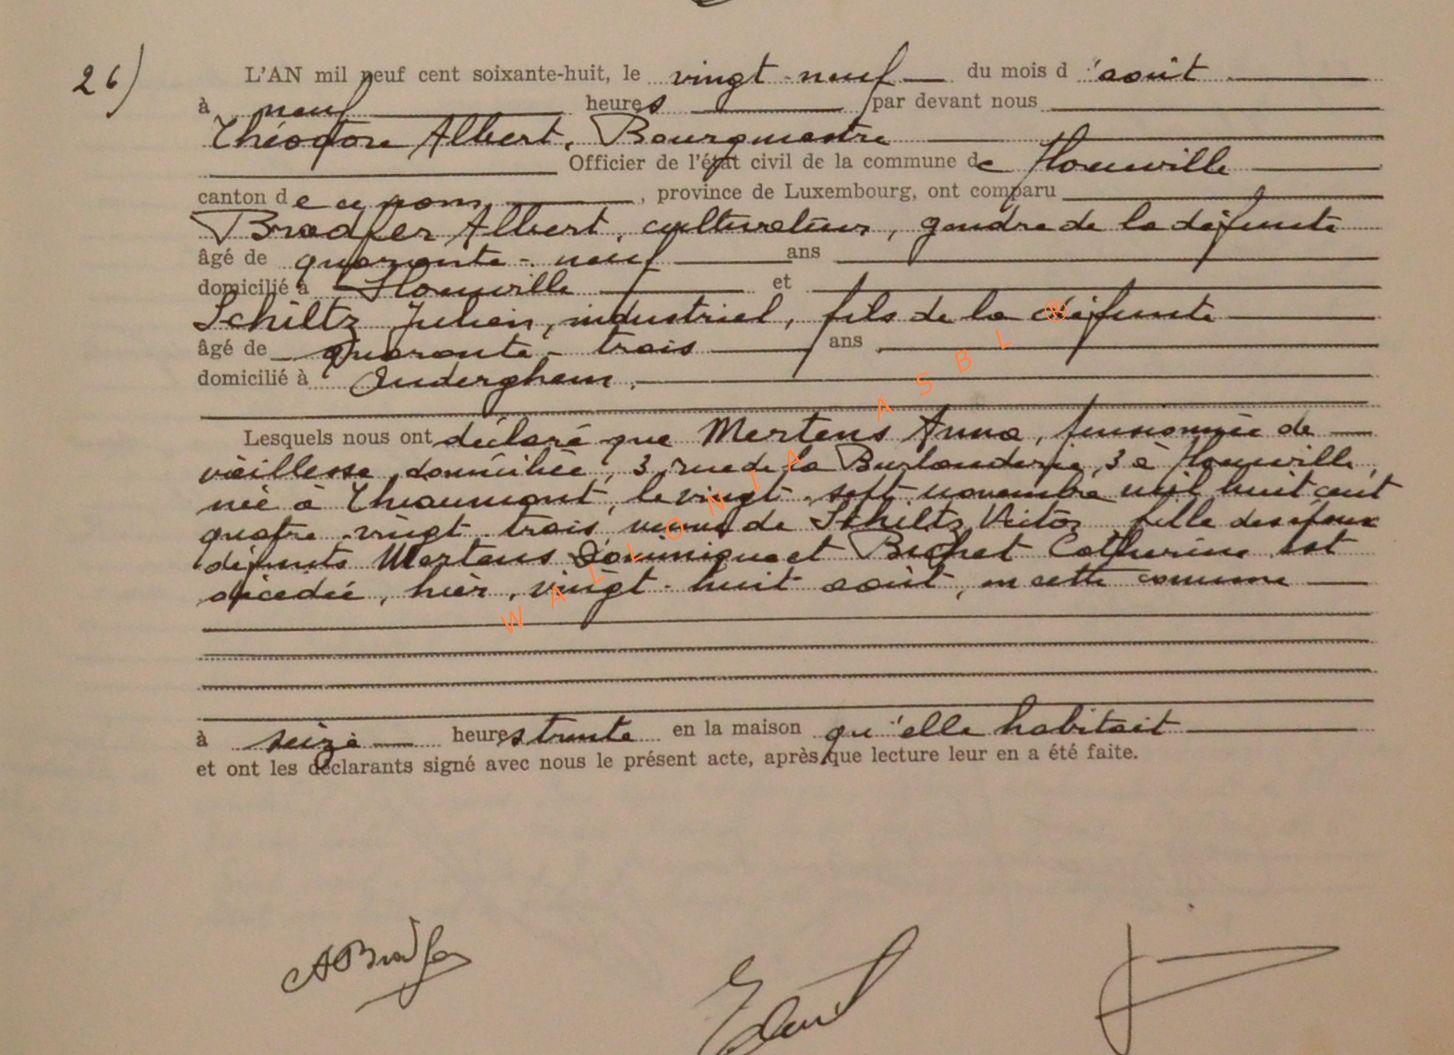 26)
L'AN mil neuf cent soixante-huit, le vingt-neuf du mois d'août
à neuf heures par devant nous
Théodore Albert, Bourgmestre
Officier de l'état civil de la commune de Honville
canton de ce nom, province de Luxembourg, ont comparu
Bradfer Albert, cultivateur, gendre de la défunte
âgé de quarante-neuf ans
domicilié à Honville et
Schiltz Julien, industriel, fils de la défunte
âgé de quarante-trois ans
domicilié à Auderghem.
Lesquels nous ont déclaré que Mertens Anna, pensionnée de
vieillesse, domiciliée, 3, rue de la 3 à Honville,
née à Thiaumont, le vingt-sept novembre mil huit cent
quatre-vingt trois veuve de Schiltz Victor fille des époux
défunts Mertens Dominique et Bichet Catherine est
décédée, hier, vingt-huit août, en cette commune
à seize heures trente en la maison qu'elle habitait
et ont les déclarants signé avec nous le présent acte, après que lecture leur en a été faite.
ABradfer
WALLONIA ASBL ®